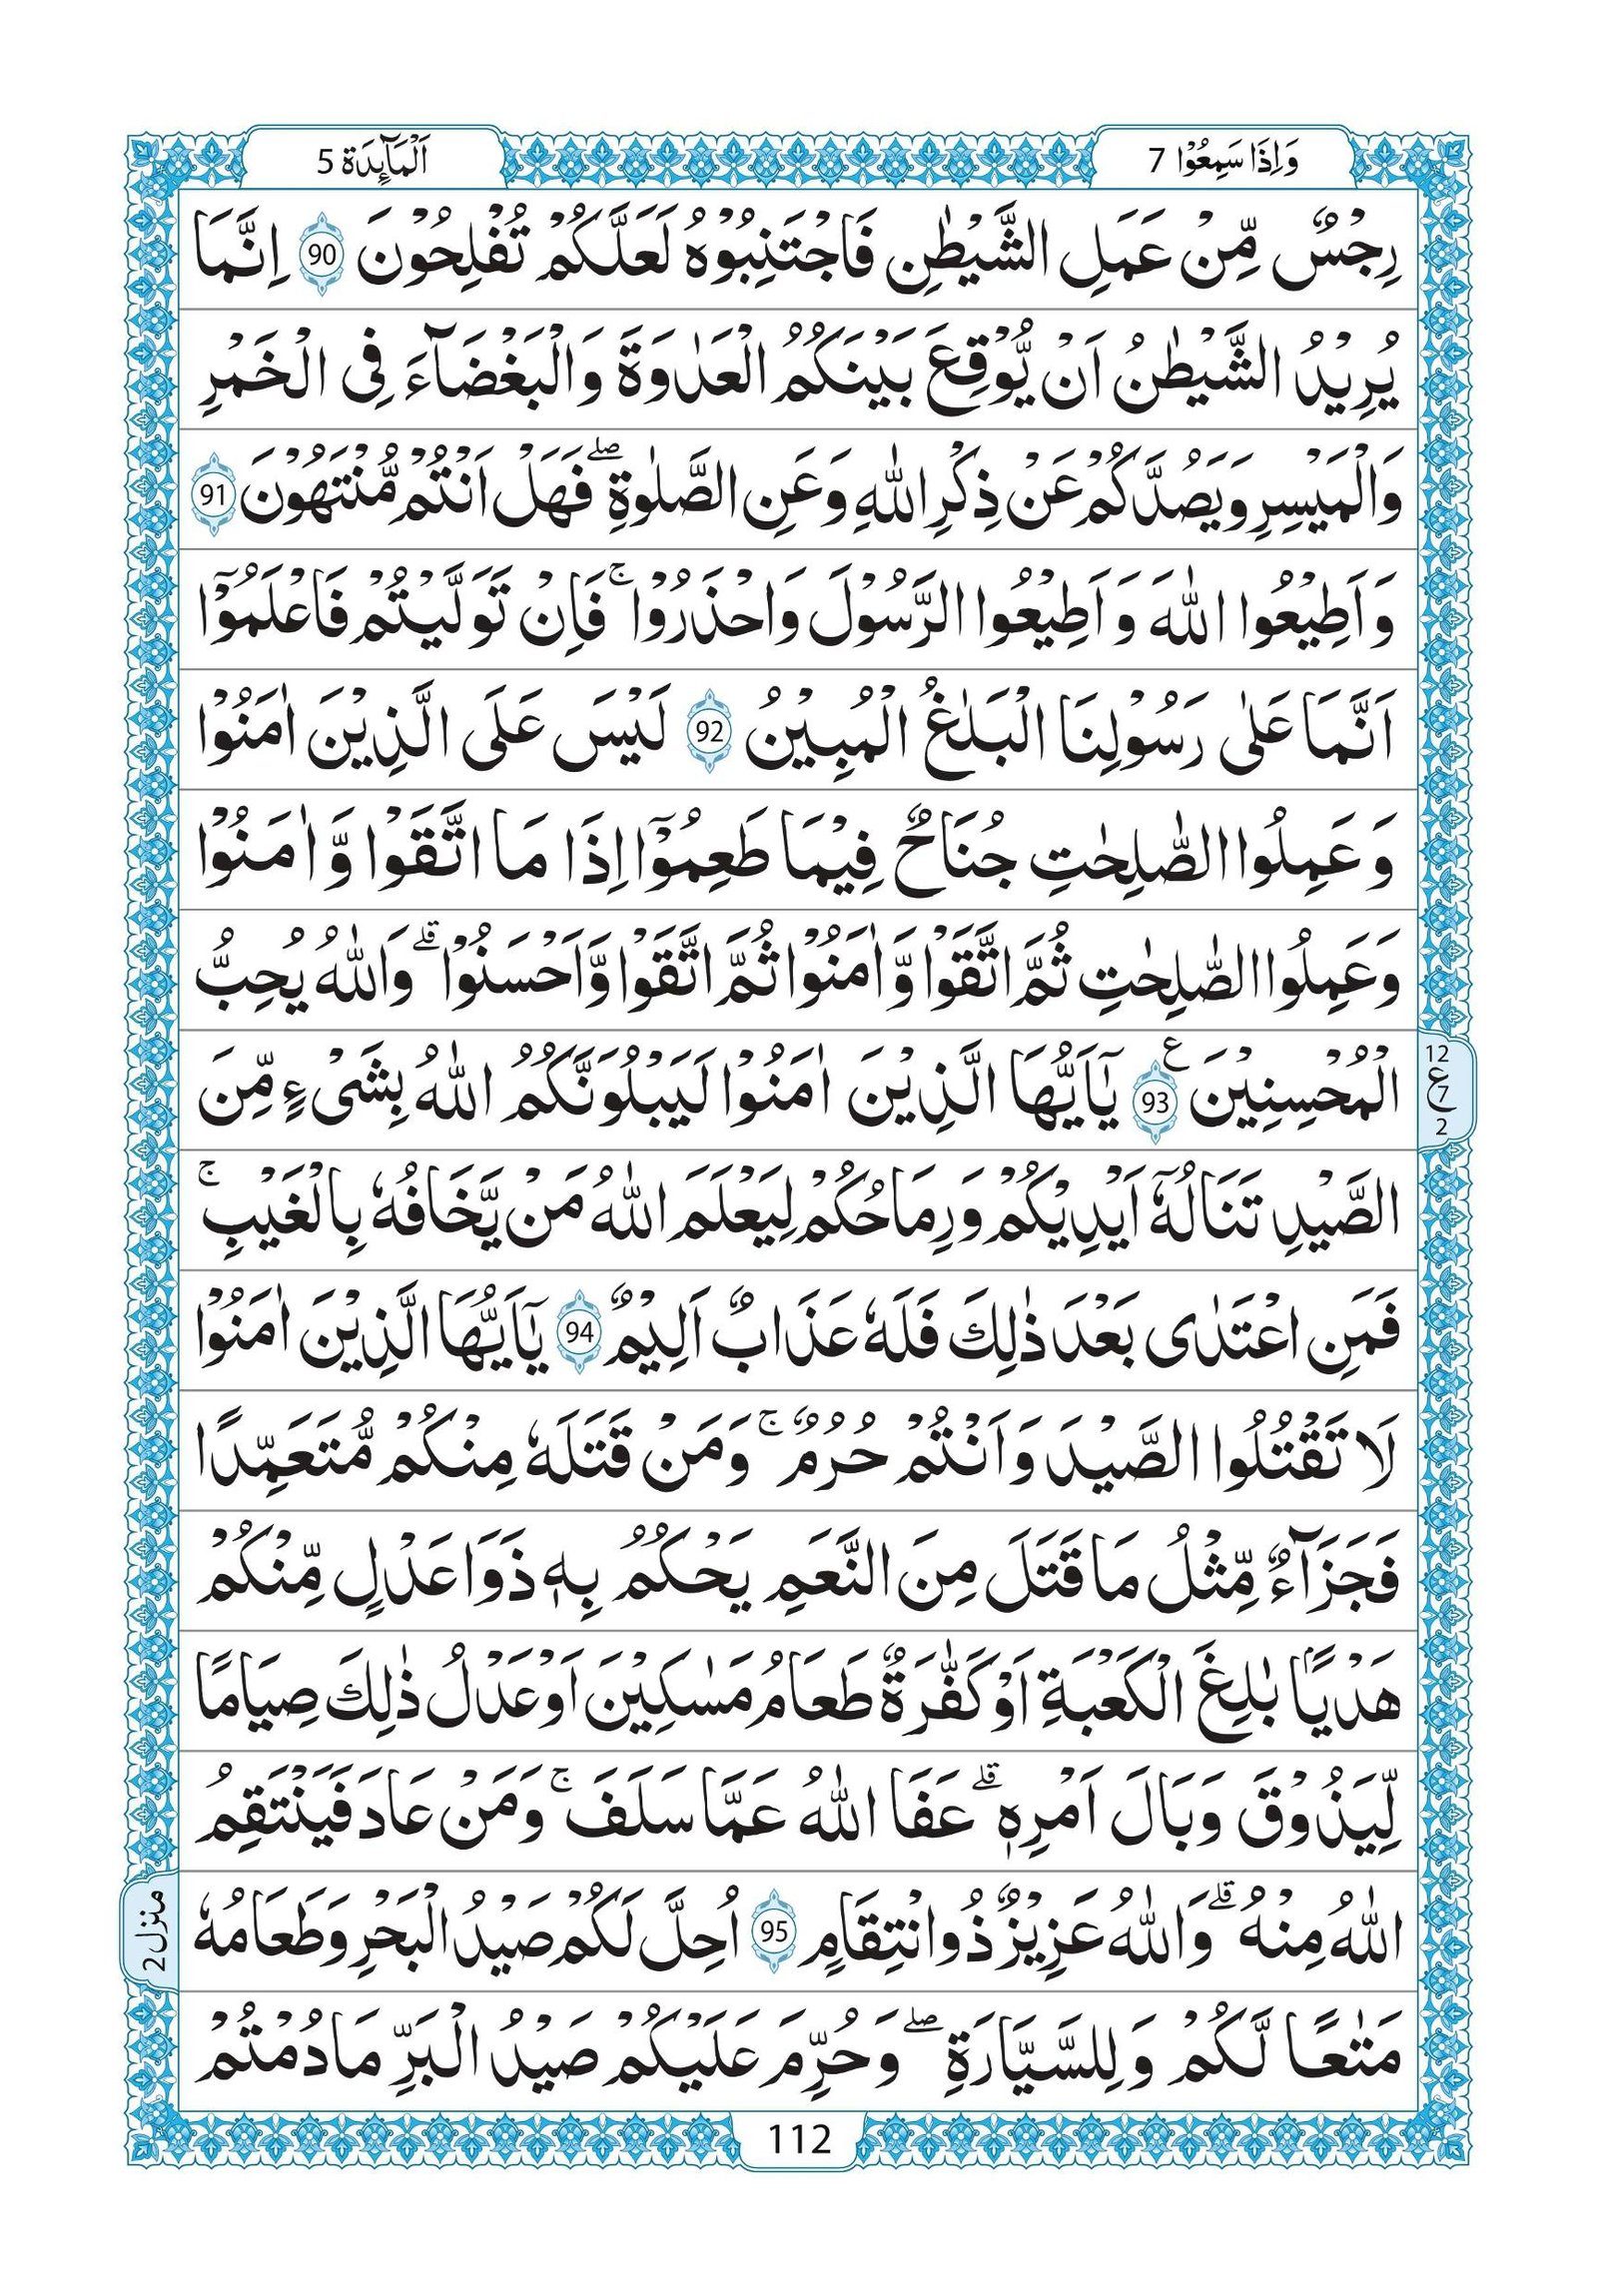 وَاِذَا سَمِعُوْا 7
اَلْمَآئِدَة 5
رِجْسٌ مِّنْ عَمَلِ الشَّيْطٰنِ فَاجْتَنِبُوْهُ لَعَلَّكُمْ تُفْلِحُوْنَ 90 اِنَّمَا
يُرِيْدُ الشَّيْطٰنُ اَنْ يُّوْقِعَ بَيْنَكُمُ الْعَدٰوَةَ وَالْبَغْضَآءَ فِى الْخَمْرِ
وَالْمَيْسِرِ وَيَصُدَّكُمْ عَنْ ذِكْرِ اللّٰهِ وَعَنِ الصَّلٰوةِ ۖ فَهَلْ اَنْتُمْ مُّنْتَهُوْنَ 91
وَاَطِيْعُوا اللّٰهَ وَاَطِيْعُوا الرَّسُوْلَ وَاحْذَرُوْا ۚ فَاِنْ تَوَلَّيْتُمْ فَاعْلَمُوْٓا
اَنَّمَا عَلٰى رَسُوْلِنَا الْبَلٰغُ الْمُبِيْنُ 92 لَيْسَ عَلَى الَّذِيْنَ اٰمَنُوْا
وَعَمِلُوا الصّٰلِحٰتِ جُنَاحٌ فِيْمَا طَعِمُوْٓا اِذَا مَا اتَّقَوْا وَّاٰمَنُوْا
وَعَمِلُوا الصّٰلِحٰتِ ثُمَّ اتَّقَوْا وَّاٰمَنُوْا ثُمَّ اتَّقَوْا وَّاَحْسَنُوْا ۗ وَاللّٰهُ يُحِبُّ
الْمُحْسِنِيْنَ ع 93 يٰٓاَيُّهَا الَّذِيْنَ اٰمَنُوْا لَيَبْلُوَنَّكُمُ اللّٰهُ بِشَىْءٍ مِّنَ
12
ع 7
2
الصَّيْدِ تَنَالُهٗٓ اَيْدِيْكُمْ وَرِمَاحُكُمْ لِيَعْلَمَ اللّٰهُ مَنْ يَّخَافُهٗ بِالْغَيْبِ ۚ
فَمَنِ اعْتَدٰى بَعْدَ ذٰلِكَ فَلَهٗ عَذَابٌ اَلِيْمٌ 94 يٰٓاَيُّهَا الَّذِيْنَ اٰمَنُوْا
لَا تَقْتُلُوا الصَّيْدَ وَاَنْتُمْ حُرُمٌ ۚ وَمَنْ قَتَلَهٗ مِنْكُمْ مُّتَعَمِّدًا
فَجَزَآءٌ مِّثْلُ مَا قَتَلَ مِنَ النَّعَمِ يَحْكُمُ بِهٖ ذَوَا عَدْلٍ مِّنْكُمْ
هَدْيًاۢ بٰلِغَ الْكَعْبَةِ اَوْ كَفّٰرَةٌ طَعَامُ مَسٰكِيْنَ اَوْ عَدْلُ ذٰلِكَ صِيَامًا
لِّيَذُوْقَ وَبَالَ اَمْرِهٖ ۗ عَفَا اللّٰهُ عَمَّا سَلَفَ ۚ وَمَنْ عَادَ فَيَنْتَقِمُ
اللّٰهُ مِنْهُ ۗ وَاللّٰهُ عَزِيْزٌ ذُو انْتِقَامٍ 95 اُحِلَّ لَكُمْ صَيْدُ الْبَحْرِ وَطَعَامُهٗ
منزل 2
مَتٰعًا لَّكُمْ وَلِلسَّيَّارَةِ ۖ وَحُرِّمَ عَلَيْكُمْ صَيْدُ الْبَرِّ مَا دُمْتُمْ
112